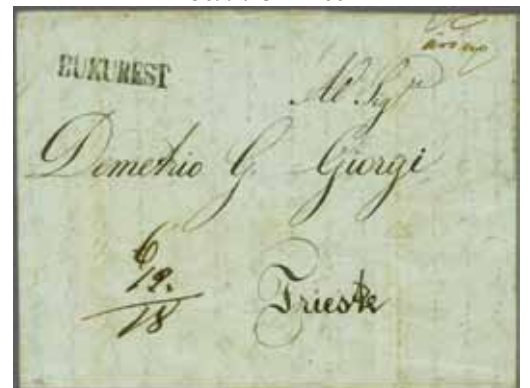 BUKUREST
Al Sigr
Demetrio G. Giorgi
6
12.
18
Trieste